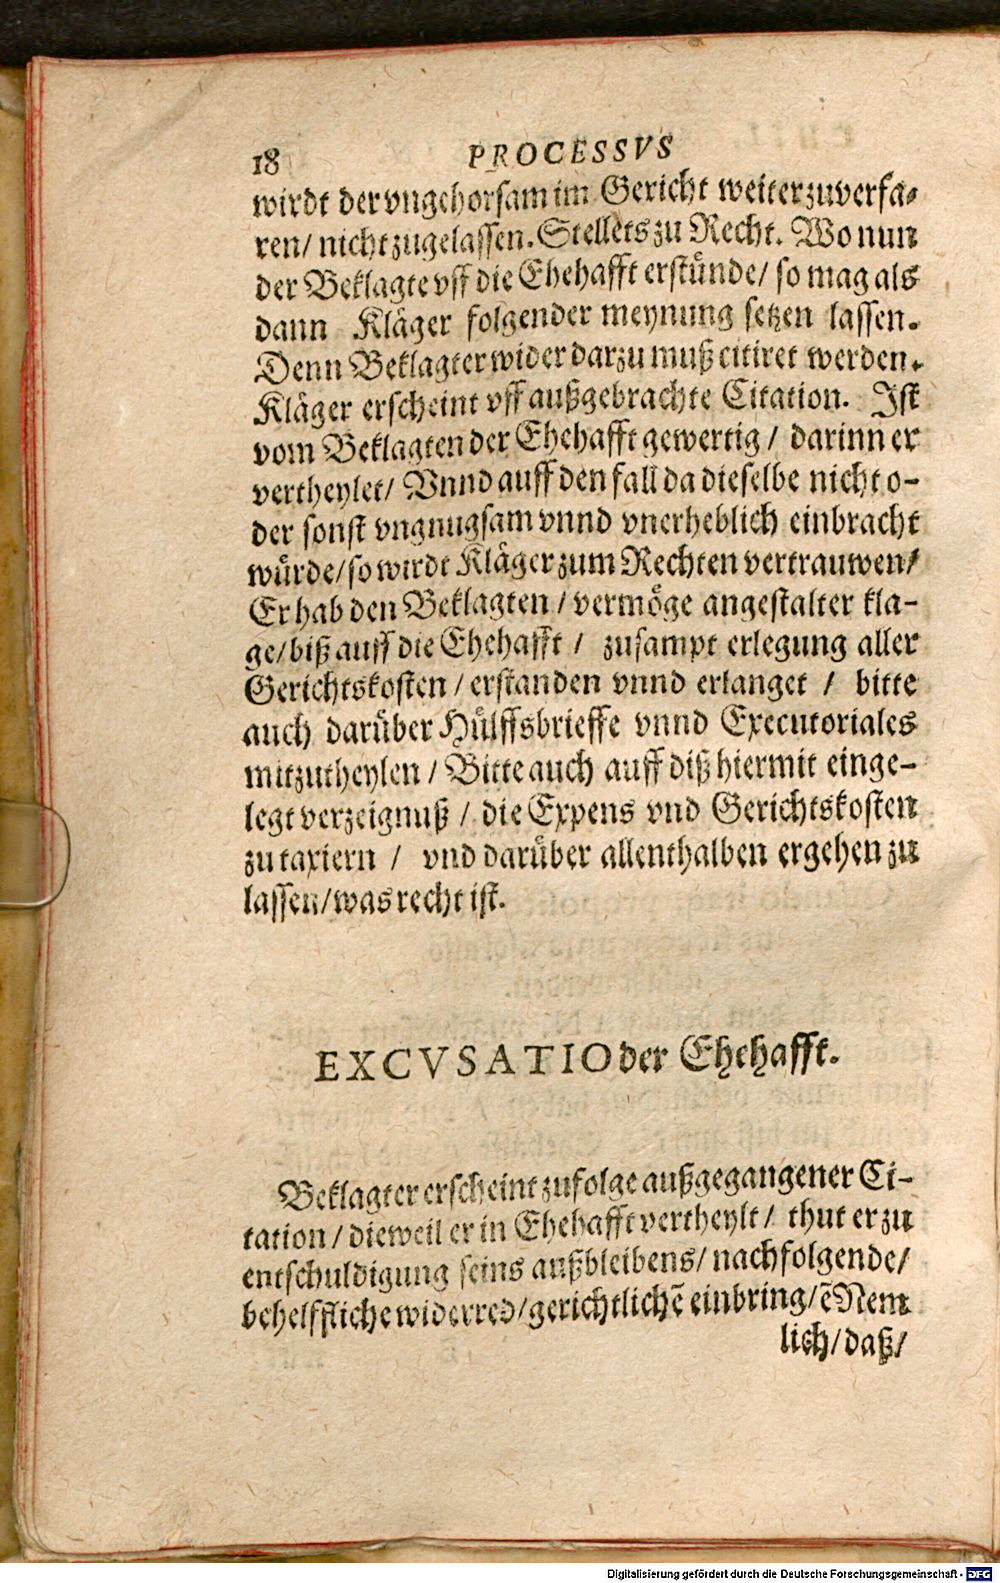 18 PROCESSVS
wirdt der vngehorsam im Gericht weiter zuverfa-
ren/ nicht zugelassen. Stellets zu Recht. Wo nun
der Beklagte vff die Ehehafft erstünde/ so mag als
dann Kläger folgender meynung setzen lassen.
Denn Beklagter wider darzu muß citiret werden.
Kläger erscheint vff außgebrachte Citation. Ist
vom Beklagten der Ehehafft gewertig / darinn er
vertheylet/ Vnnd auff den fall da dieselbe nicht o-
der sonst vngnugsam vnnd vnerheblich einbracht
würde/ so wirdt Kläger zum Rechten vertrauwen/
Er hab den Beklagten / vermöge angestalter kla-
ge/ biß auff die Ehehafft / zusampt erlegung aller
Gerichtskosten / erstanden vnnd erlanget / bitte
auch darüber Hülffsbrieffe vnnd Executoriales
mitzutheylen / Bitte auch auff diß hiermit einge-
legt verzeignuß / die Expens vnd Gerichtskosten
zu taxiern / vnd darüber allenthalben ergehen zu
lassen/ was recht ist.
EXCVSATIO der Ehehafft.
Beklagter erscheint zufolge außgegangener Ci-
tation / dieweil er in Ehehafft vertheylt / thut er zu
entschuldigung seins außbleibens/ nachfolgende/
behelffliche widerred/ gerichtlichẽ einbring/ ẽ Nem
lich/ daß/
Digitalisierung gefördert durch die Deutsche Forschungsgemeinschaft - DFG